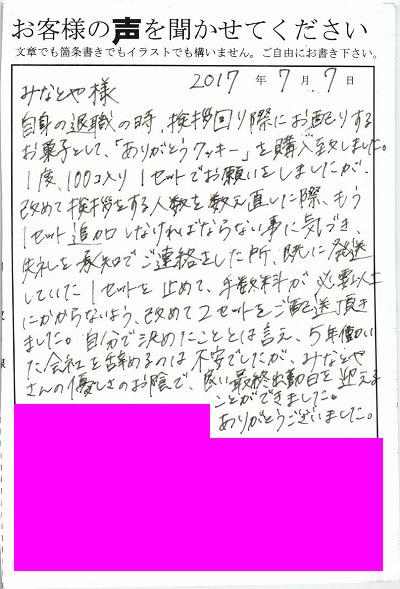 お客様の声を聞かせてください
文章でも箇条書きでもイラストでも構いません。ご自由にお書き下さい。
2017年7月7日
みなとや様
自身の退職の時、挨拶回り際にお配りする
お菓子として、「ありがとうクッキー」を購入致しました。
1度、100コ入り1セットでお願いをしましたが、
改めて挨拶をする人数を数え直した際、もう
1セット追加しなければならない事に気づき、
失礼を承知でご連絡をした所、既に発送
していた1セットを止めて、手数料が必要以上
にかからないよう、改めて2セットをご配送頂き
ました。自分で決めたこととは言え、5年働い
た会社を辞めるのは不安でしたが、みなとや
さんの優しさのお陰で、良い最終出勤日を迎える
ことができました。
ありがとうございました。